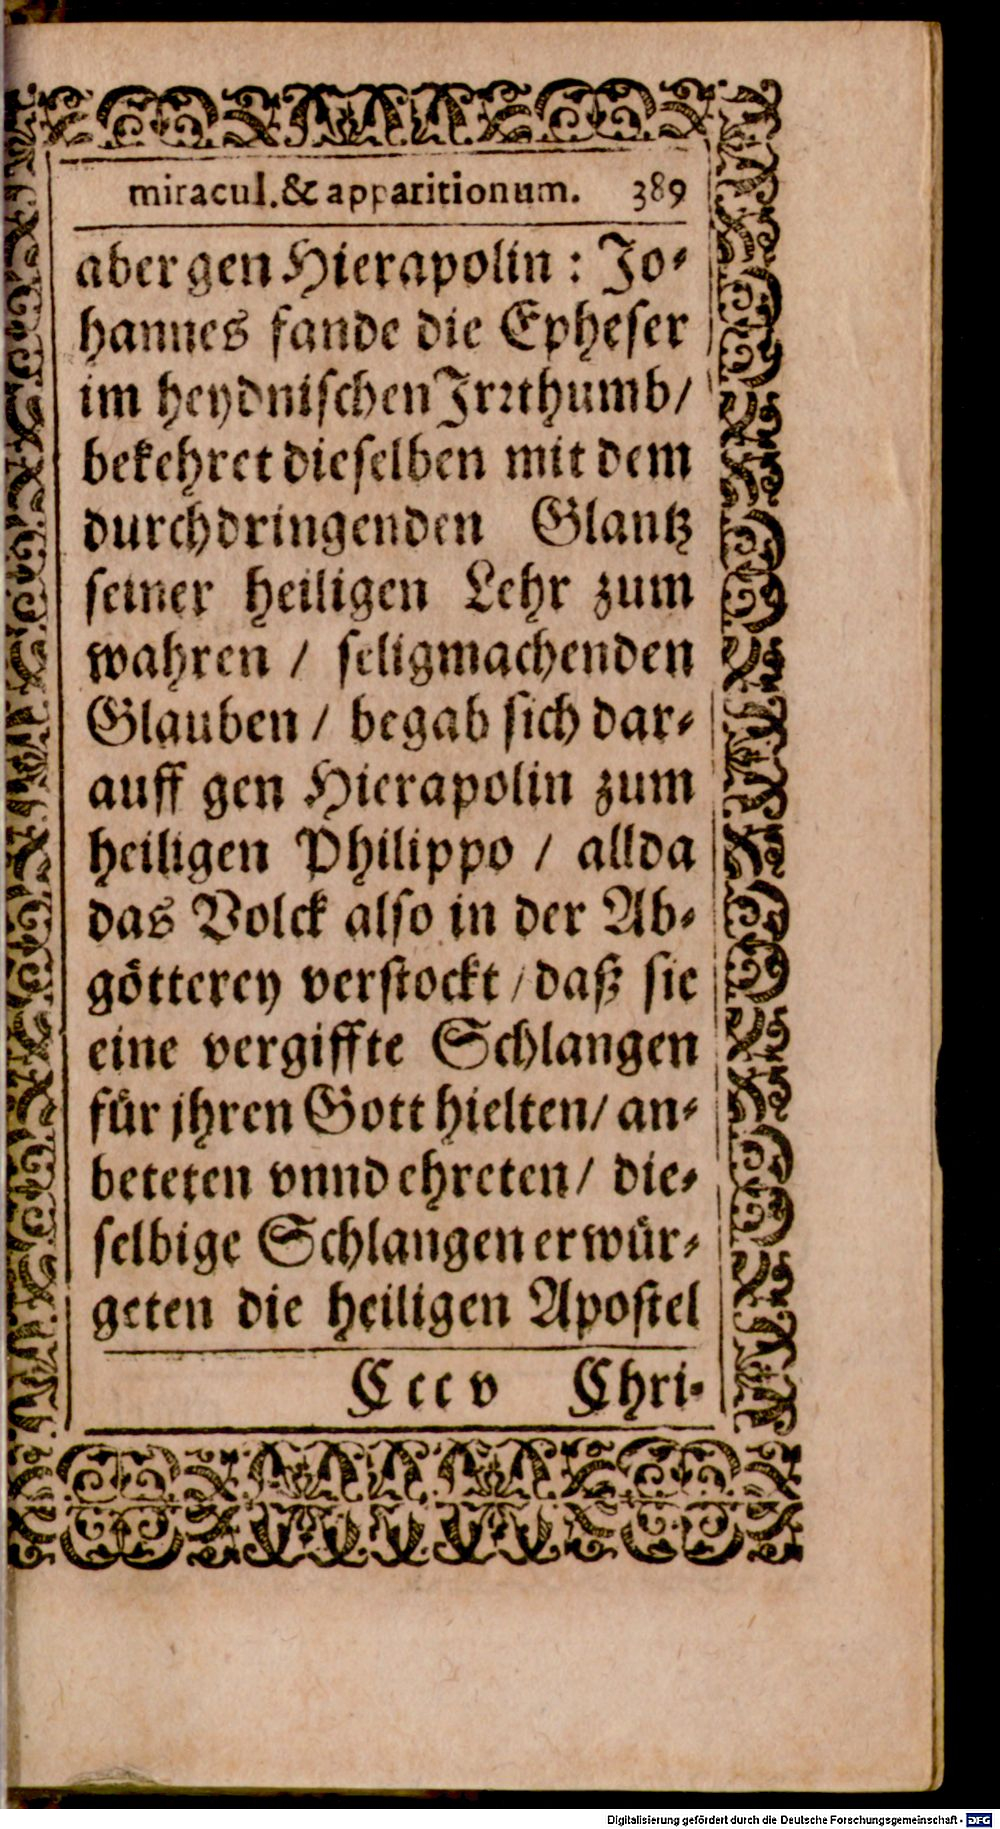 miracul. & apparitionum. 389
aber gen Hierapolin : Jo⸗
hannes fande die Epheser
im heydnischen Irrthumb/
bekehret dieselben mit dem
durchdringenden Glantz
seiner heiligen Lehr zum
wahren / seligmachenden
Glauben / begab sich dar⸗
auff gen Hierapolin zum
heiligen Philippo / allda
das Volck also in der Ab⸗
götterey verstockt / daß sie
eine vergiffte Schlangen
für jhren Gott hielten / an⸗
beteten vnnd ehreten / die⸗
selbige Schlangen erwür⸗
geten die heiligen Apostel
Ccc v Chri⸗
Digitalisierung gefördert durch die Deutsche Forschungsgemeinschaft - DFG